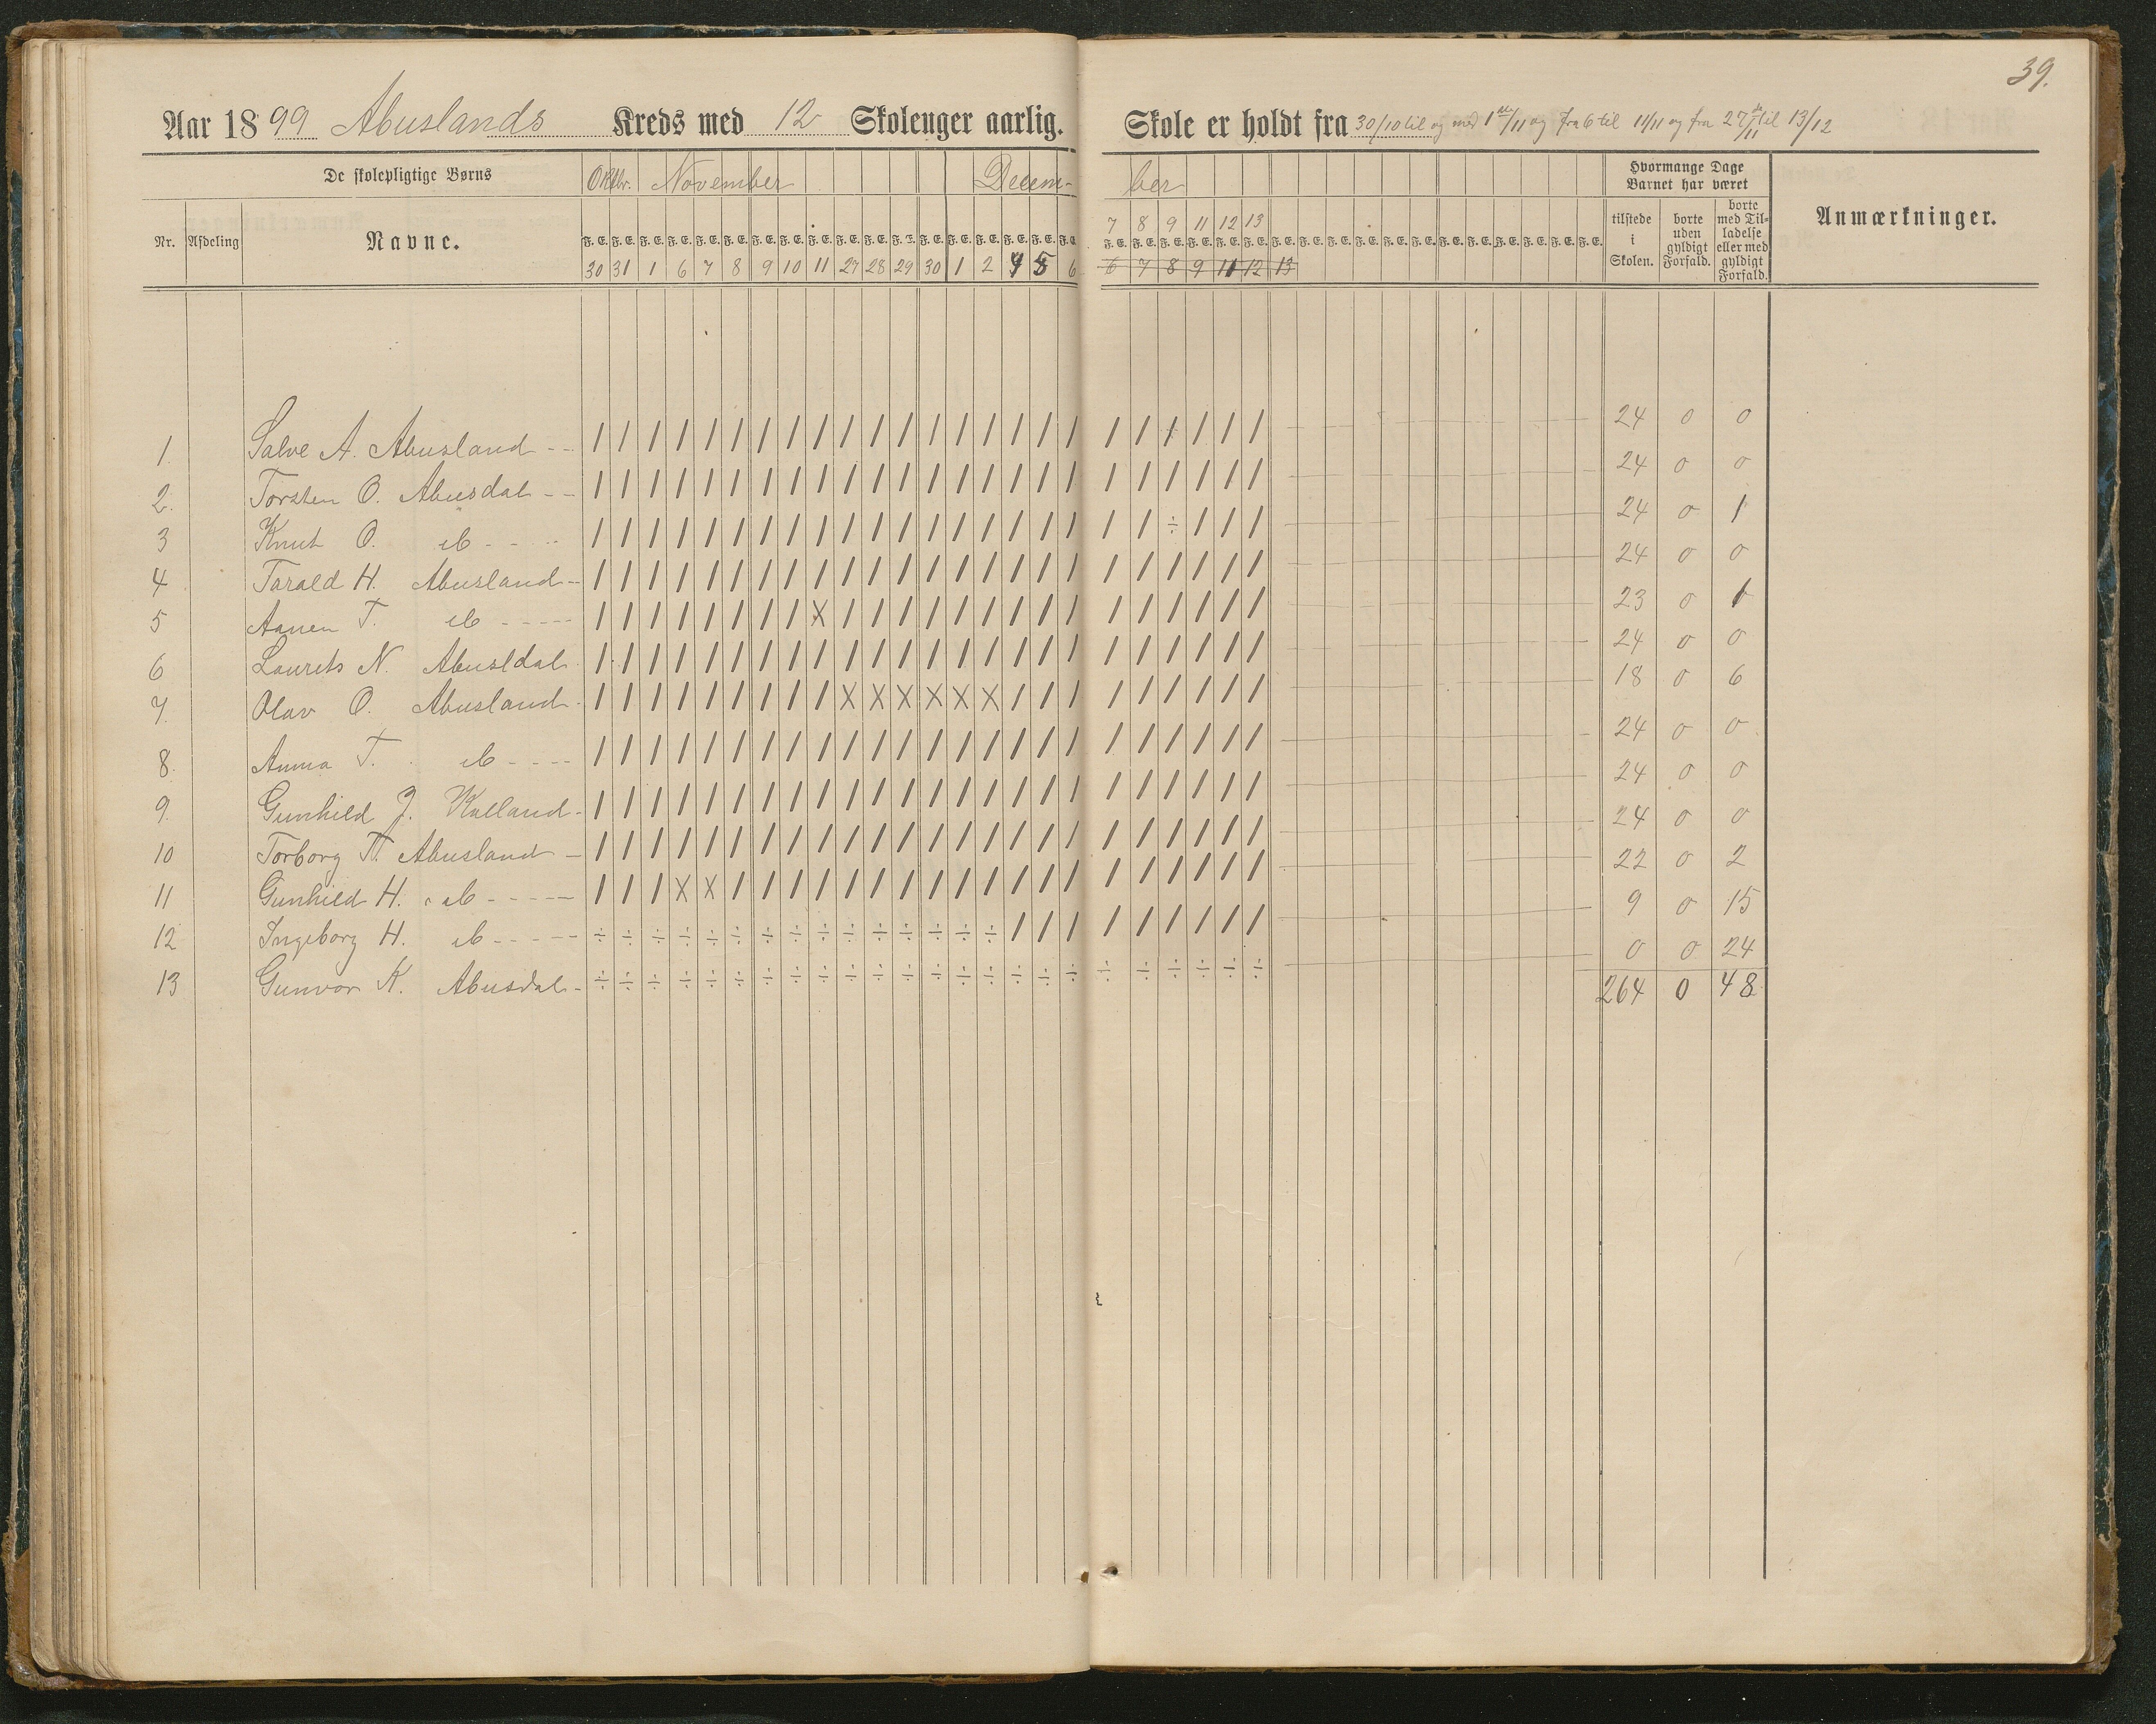 39.
Aar 1899 Abuslands Kreds med 12 Skoleuger aarlig. Skole er holdt fra 30/10 til og med 1ste/11 og fra 6 til 11/11 og fra 27de/11 til 13/12
De skolepligtige Børns Oktbr. November Decem- ber Hvormange Dage Barnet har været
Nr. Afdeling Navne. tilstede i Skolen. borte uden gyldigt Forfald. borte med Tilladelse eller med gyldigt Forfald. Anmærkninger.
7 8 9 11 12 13
F. E. F. E. F. E. F. E. F. E. F. E. F. E. F. E. F. E. F. E. F. E. F. E. F. E. F. E. F. E. F. E. F. E. F. E. F. E. F. E. F. E. F. E. F. E. F. E. F. E. F. E. F. E. F. E. F. E. F. E. F. E. F. E. F. E. F. E. F. E. F. E.
30 31 1 6 7 8 9 10 11 27 28 29 30 1 2 4 5 6 6 7 8 9 11 12 13
1. Salve A. Abusland -- / / / / / / / / / / / / / / / / / / / / / / / / 24 0 0
2. Torsten O. Abusdal -- / / / / / / / / / / / / / / / / / / / / / / / / 24 0 0
3 Knut O. ib - - - / / / / / / / / / / / / / / / / / / / / ÷ / / / 24 0 1
4 Tarald H. Abusland - / / / / / / / / / / / / / / / / / / / / / / / / 24 0 0
5 Aanen T. ib ----- / / / / / / / / X / / / / / / / / / / / / / / / 23 0 1
6 Laurits N. Abusldal / / / / / / / / / / / / / / / / / / / / / / / / 24 0 0
7. Olav O. Abusland - / / / / / / / / / X X X X X X / / / / / / / / / 18 0 6
8. Anna T. ib ---- / / / / / / / / / / / / / / / / / / / / / / / / 24 0 0
9. Gunhild J. Kalland - / / / / / / / / / / / / / / / / / / / / / / / / 24 0 0
10 Torborg T. Abusland - / / / / / / / / / / / / / / / / / / / / / / / / 24 0 0
11 Gunhild H. ib ----- / / / X X / / / / / / / / / / / / / / / / / / / 22 0 2
12 Ingeborg H. ib ----- ÷ ÷ ÷ ÷ ÷ ÷ ÷ ÷ ÷ ÷ ÷ ÷ ÷ ÷ ÷ / / / / / / / / / 9 0 15
13 Gunvor K. Abusdal - ÷ ÷ ÷ ÷ ÷ ÷ ÷ ÷ ÷ ÷ ÷ ÷ ÷ ÷ ÷ ÷ ÷ ÷ ÷ ÷ ÷ ÷ ÷ ÷ 0 0 24
264 0 48